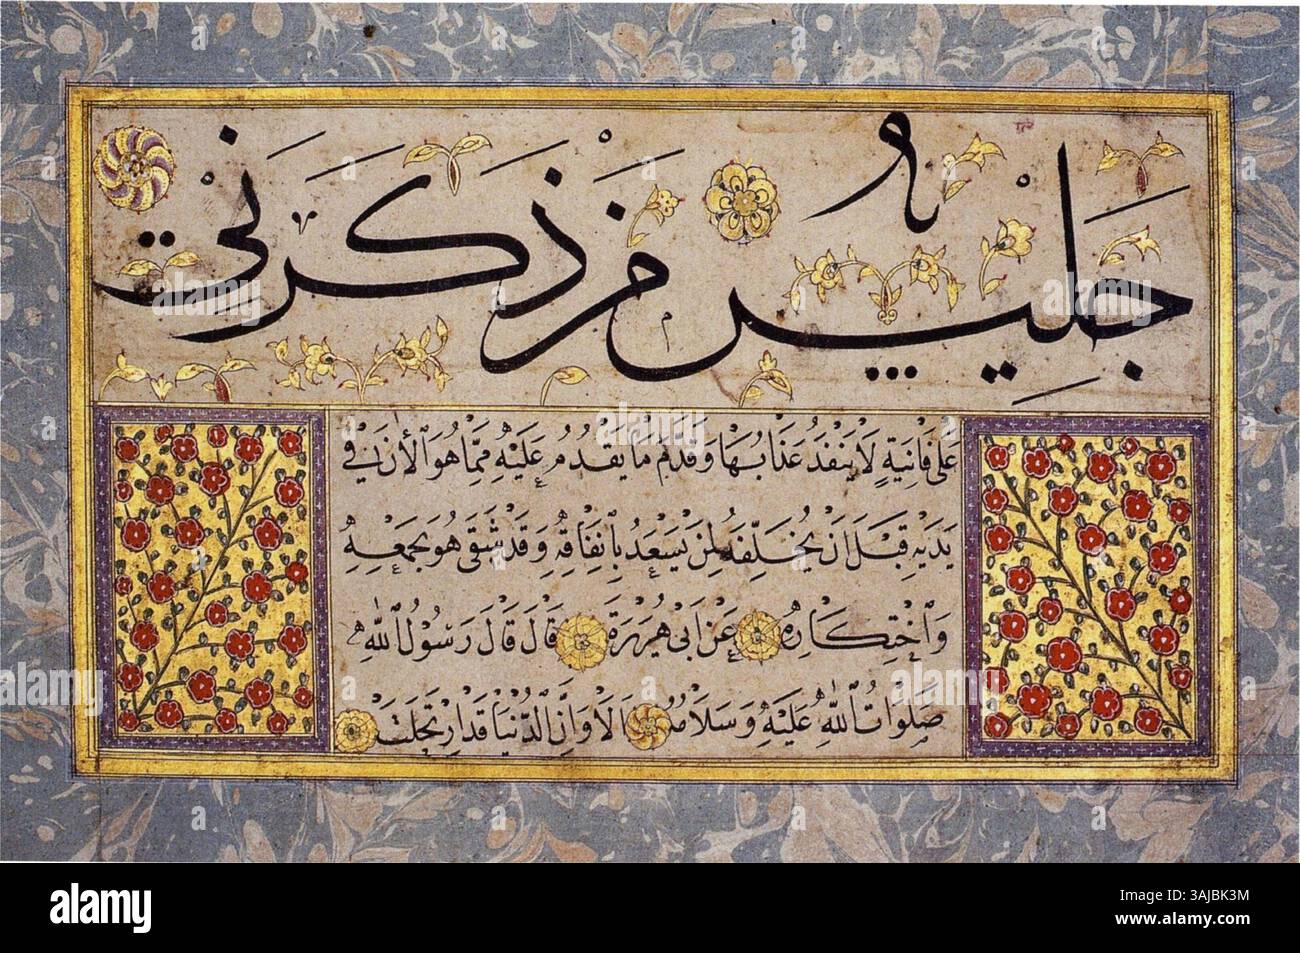 جَلِيسُ مَنْ ذَكَرَنِي
عَلَى فَانِيَةٍ لَا يَنْفَدُ عَذَابُهَا وَقَدَّمَ مَا يَقْدُمُ عَلَيْهِ مِمَّا هُوَ الْأٰنَ فِي
يَدَيْهِ قَبْلَ اَنْ يُخَلِّفَهُ لِمَنْ يَسْعَدُ بِاِنْفَاقِهِ وَقَدْ شَقِىَ هُوَ بِجَمْعِهِ
وَاحْتِكَارِهِ عَنْ اَبِى هُرَيْرَةَ قَالَ قَالَ رَسُولُ اللّٰهِ
صَلَوَاتُ اللّٰهِ عَلَيْهِ وَسَلَامُهُ اَلَا وَاِنَّ الدُّنْيَا قَدِ ارْتَحَلَتْ
alamy
Image ID: 3AJBK3M
www.alamy.com